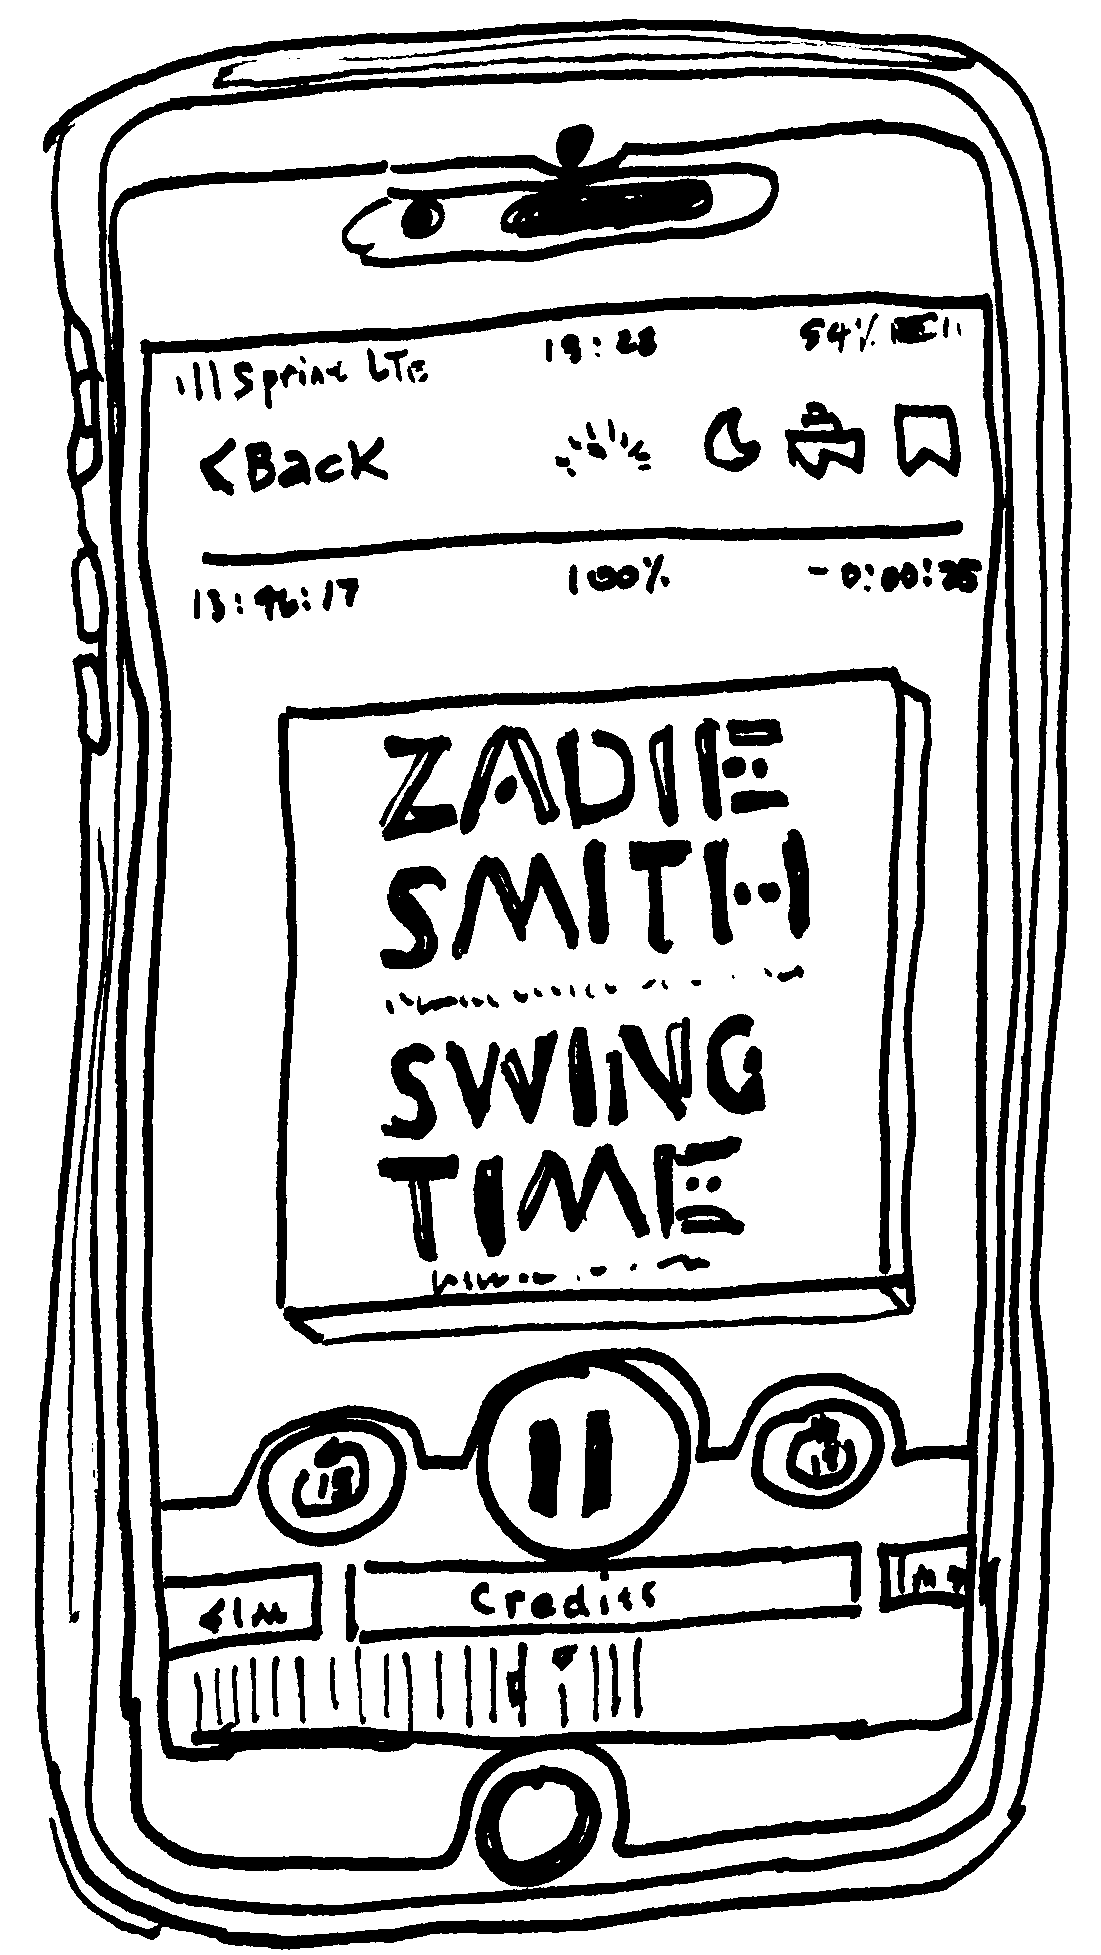 Sprint LTE 19:28 54%
<Back
13:46:17 100% -0:00:35
ZADIE
SMITH
SWING
TIME
15
Credits